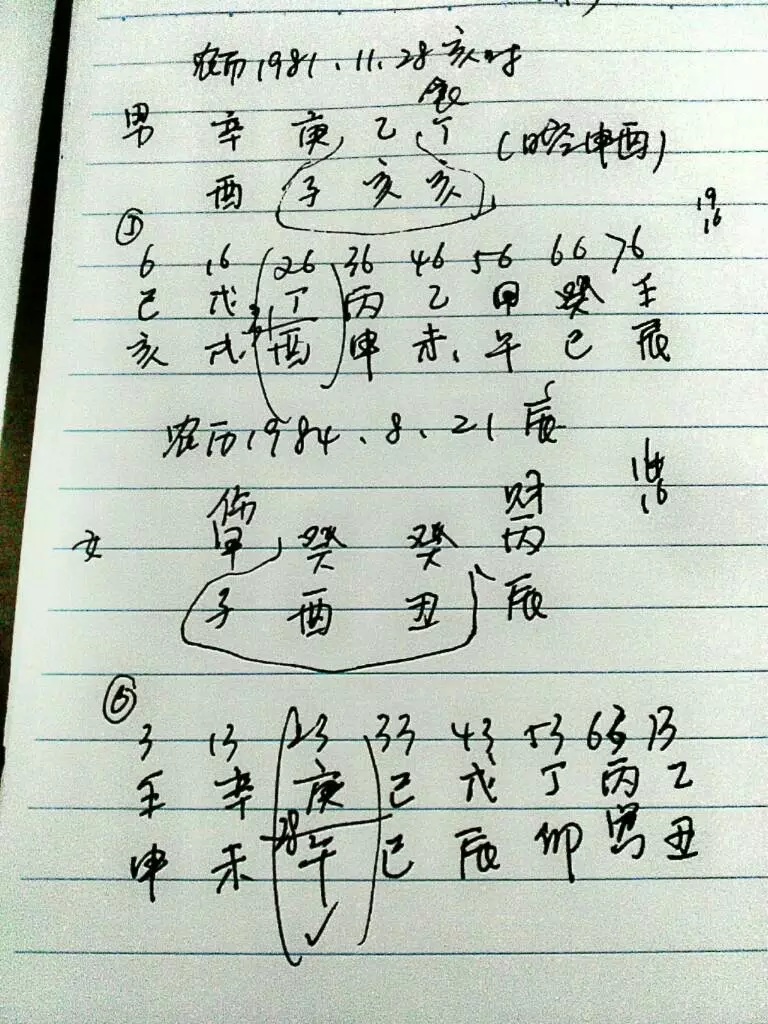 农历1981.11.28亥时
食
男 辛 庚 乙 丁 (时空申酉)
酉 子 亥 亥
19
16
①
6 16 26 36 46 56 66 76
己 戊 丁 丙 乙 甲 癸 壬
亥 戌 31 酉 申 未 午 巳 辰
农历1984.8.21 辰
16
伤 财
女 甲 癸 癸 丙
子 酉 丑 辰
⑥
3 13 23 33 43 53 63 73
壬 辛 庚 己 戊 丁 丙 乙
申 未 28 午 巳 辰 卯 寅 丑
✓